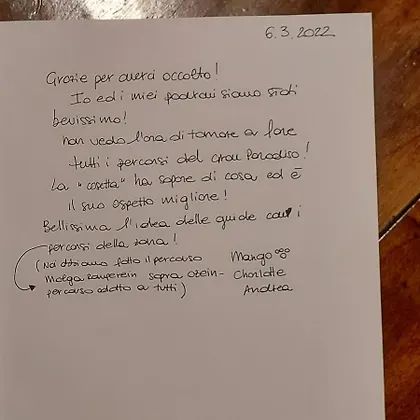 6.3.2022
Grazie per averci accolto!
Io ed i miei padroni siamo stati
benissimo!
Non vedo l'ora di tornare a fare
tutti i percorsi del Gran Paradiso!
La "casetta" ha sapore di casa ed è
il suo aspetto migliore!
Bellissima l'idea delle guide con i
percorsi della zona!
(Noi abbiamo fatto il percorso
sopra
percorso adatto a tutti)
Mango
Charlotte
Andrea